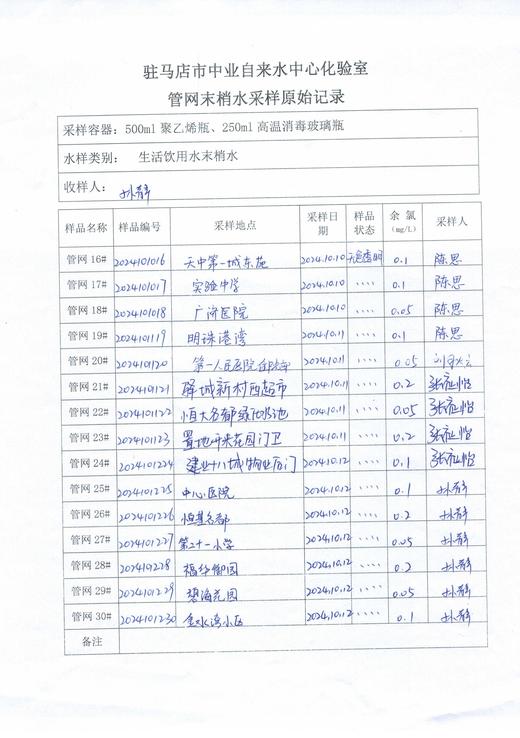 驻马店市中业自来水中心化验室
管网末梢水采样原始记录
采样容器：500ml 聚乙烯瓶、250ml 高温消毒玻璃瓶
水样类别： 生活饮用水末梢水
收样人： 孙静
样品名称 样品编号 采样地点 采样日期 样品状态 余氯(mg/L) 采样人
管网 16# 2024101016 天中第一城东苑 2024.10.10 无色透明 0.1 陈思
管网 17# 2024101017 实验中学 2024.10.10 〃〃 0.1 陈思
管网 18# 2024101018 广济医院 2024.10.10 〃〃 0.05 陈思
管网 19# 2024101119 明珠港湾 2024.10.11 〃〃 0.1 陈思
管网 20# 2024101120 第一人民医院 2024.10.11 〃〃 0.05
管网 21# 2024101121 驿城新村西超市 2024.10.11 〃〃 0.2
管网 22# 2024101122 恒大名都绿化池 2024.10.11 〃〃 0.05
管网 23# 2024101123 置地开来花园门卫 2024.10.11 〃〃 0.2
管网 24# 2024101224 建业十八城物业后门 2024.10.12 〃〃 0.1
管网 25# 2024101225 中心医院 2024.10.12 〃〃 0.1 孙静
管网 26# 2024101226 恒基名都 2024.10.12 〃〃 0.2 孙静
管网 27# 2024101227 第二十一小学 2024.10.12 〃〃 0.05 孙静
管网 28# 福华御园 2024.10.12 〃〃 0.2 孙静
管网 29# 2024101229 碧海花园 2024.10.12 〃〃 0.05 孙静
管网 30# 2024101230 金水湾小区 2024.10.12 〃〃 0.1 孙静
备注